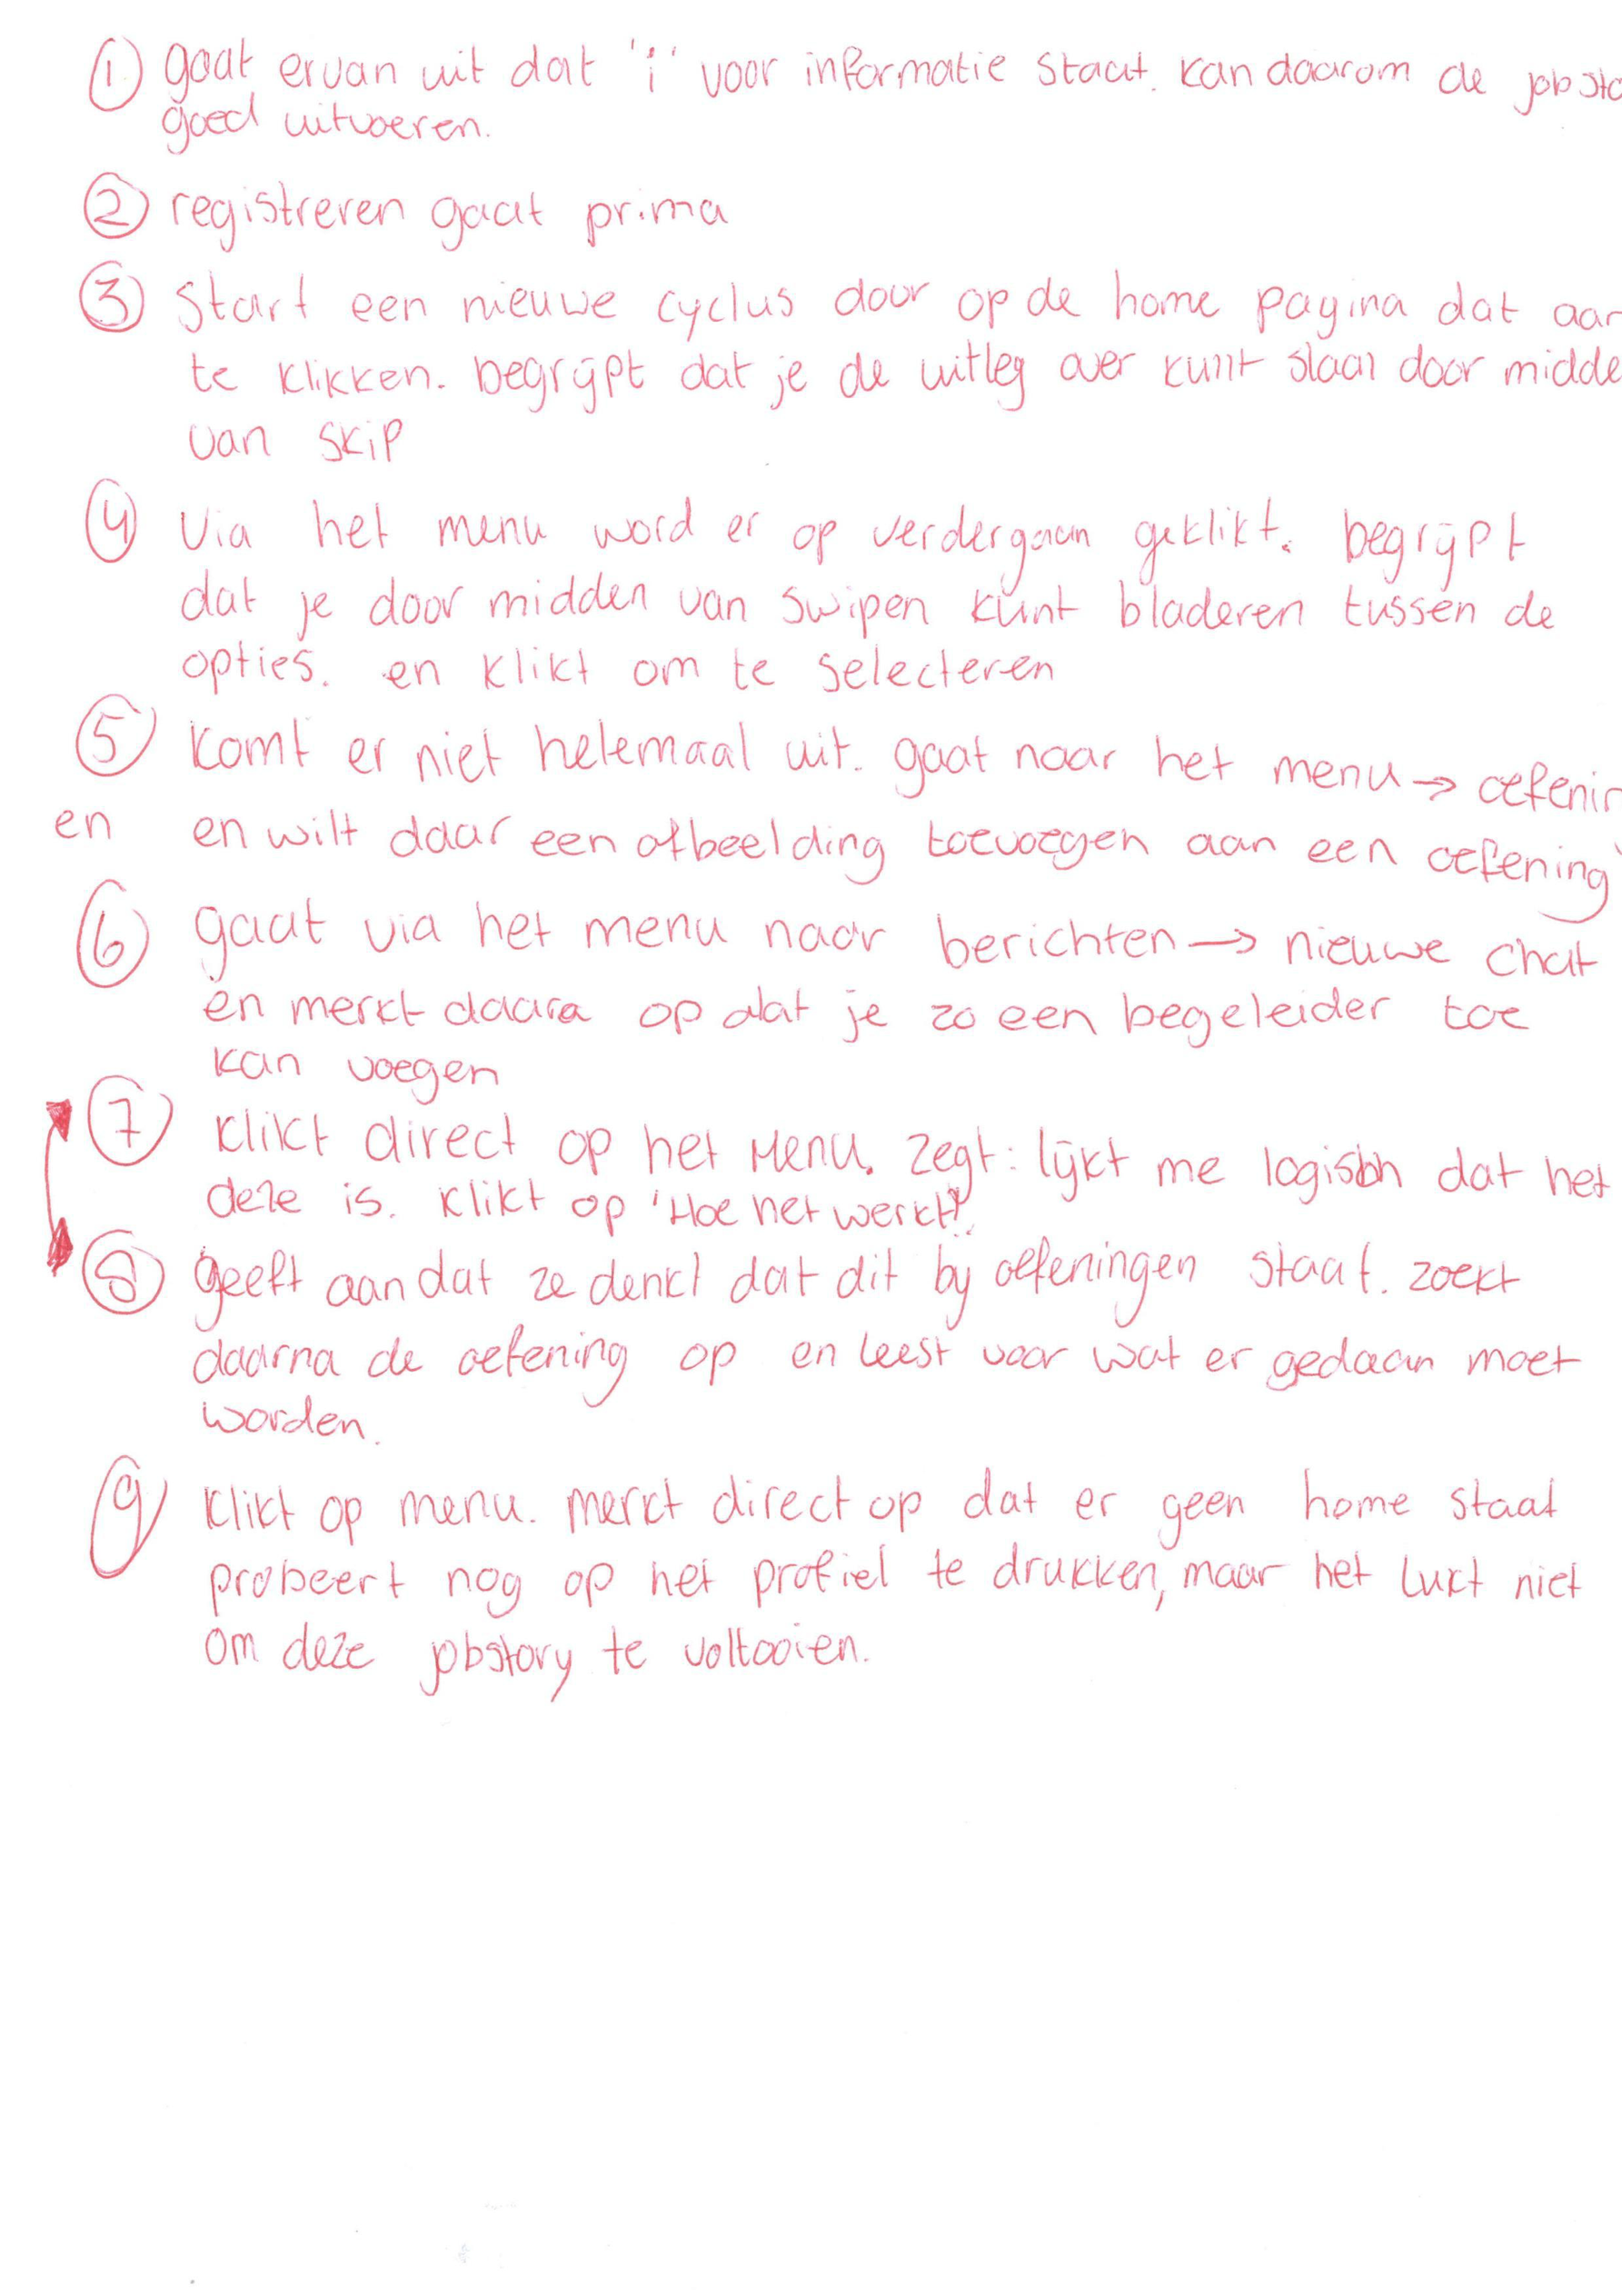 ① gaat ervan uit dat 'i' voor informatie staat. kan daarom de jobsto
goed uitvoeren.
② registreren gaat prima
③ Start een nieuwe cyclus door op de home pagina dat aan
te klikken. begrijpt dat je de uitleg over kunt slaan door midde
van skip
④ Via het menu word er op verdergaan geklikt. begrijpt
dat je door midden van swipen kunt bladeren tussen de
opties. en klikt om te selecteren
⑤ Komt er niet helemaal uit. gaat naar het menu → oefenin
en en wilt daar een afbeelding toevoegen aan een oefening
⑥ gaat via het menu naar berichten → nieuwe chat
en merkt daara op dat je zo een begeleider toe
kan voegen
⑦ Klikt direct op het Menu. Zegt: lijkt me logisch dat het
deze is. Klikt op 'Hoe het werkt?'
⑧ geeft aan dat ze denkt dat dit bij oefeningen staat. zoekt
daarna de oefening op en leest voor wat er gedaan moet
worden.
⑨ Klikt op menu. merkt direct op dat er geen home staat
probeert nog op het profiel te drukken, maar het lukt niet
om deze jobstory te voltooien.